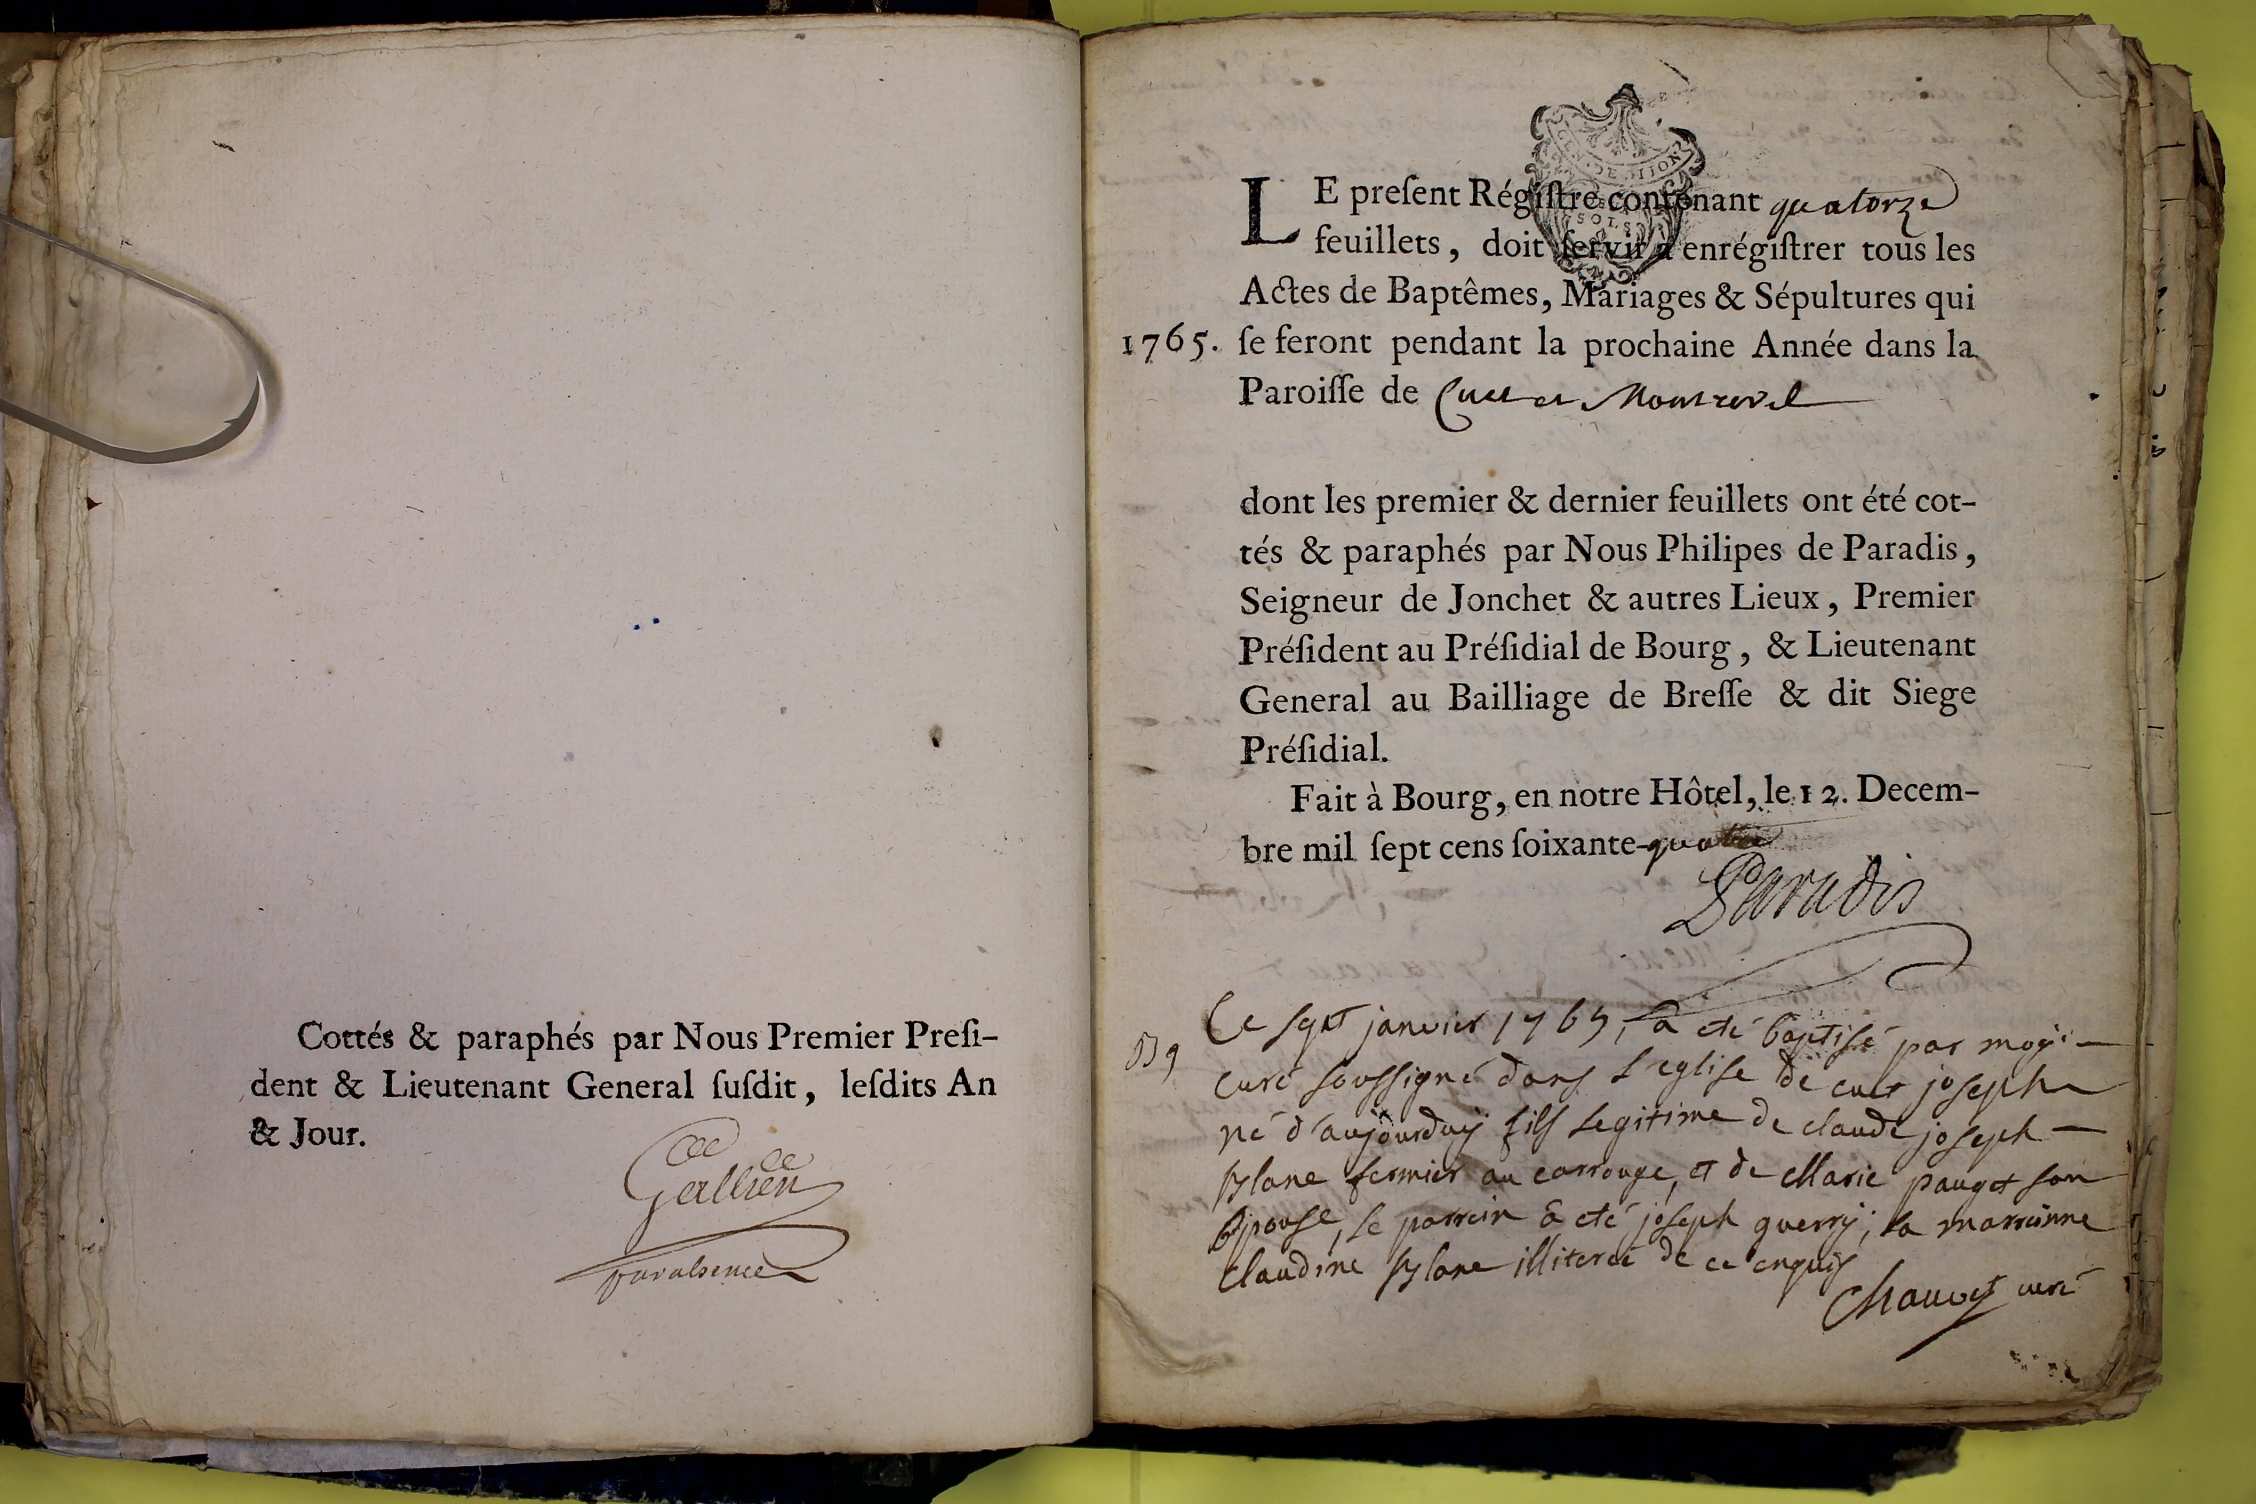 Cottés & paraphés par Nous Premier Preſi-
dent & Lieutenant General ſuſdit, leſdits An
& Jour.
Gallien
par absence
LE preſent Régiſtre contenant quatorze
feuillets, doit ſervir a enrégiſtrer tous les
Actes de Baptêmes, Mariages & Sépultures qui
1765. ſe feront pendant la prochaine Année dans la
Paroiſſe de Cuet et Montrevel
dont les premier & dernier feuillets ont été cot-
tés & paraphés par Nous Philipes de Paradis,
Seigneur de Jonchet & autres Lieux, Premier
Préſident au Préſidial de Bourg, & Lieutenant
General au Bailliage de Breſſe & dit Siege
Préſidial.
Fait à Bourg, en notre Hôtel, le 12. Decem-
bre mil ſept cens ſoixante-quatre
Paradis
Ce sept janvier 1765, a eté baptisé par moÿ
curé soussigné dans l'eglise de cuet joseph
né d'aujourduÿ fils legitime de claude joseph
Blanc fermier au carrouge, et de Marie pauget son
Epouse, le parrein a eté joseph guerrÿ; la marrainne
Claudine Blanc illiteree de ce enquis
Chauvet curé